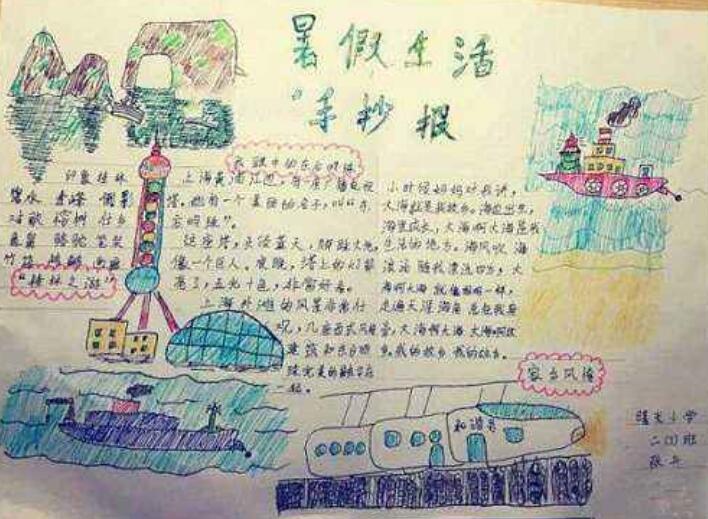 暑假生活
手抄报
我眼中的东方明珠
印象桂林
碧水 青峰 倒影
对歌 榕树 壮乡
象鼻 骆驼 笔架
竹筏
"桂林之游"
上海黄浦江边，有座广播电视
塔。她有一个美丽的名字，叫"东
方明珠"。
这座塔，头顶蓝天，脚踏大地，
像一个巨人。夜晚，塔上的灯都
亮了，五光十色，非常好看。
上海外滩的风景非常壮
观，几座西式风格
建筑和东方明
珠完美的融合在
一起。
小时候妈妈对我讲，
大海就是我故乡。海边出生，
海里成长，大海啊大海是我
生活的地方。海风吹 海
浪涌 随我漂流四方，大
海啊大海 就像妈妈一样，
走遍天涯海角 总在我身
旁，大海啊大海 大海啊故
乡，我的故乡 我的故乡。
家乡风情
和谐号
小学
二(1)班